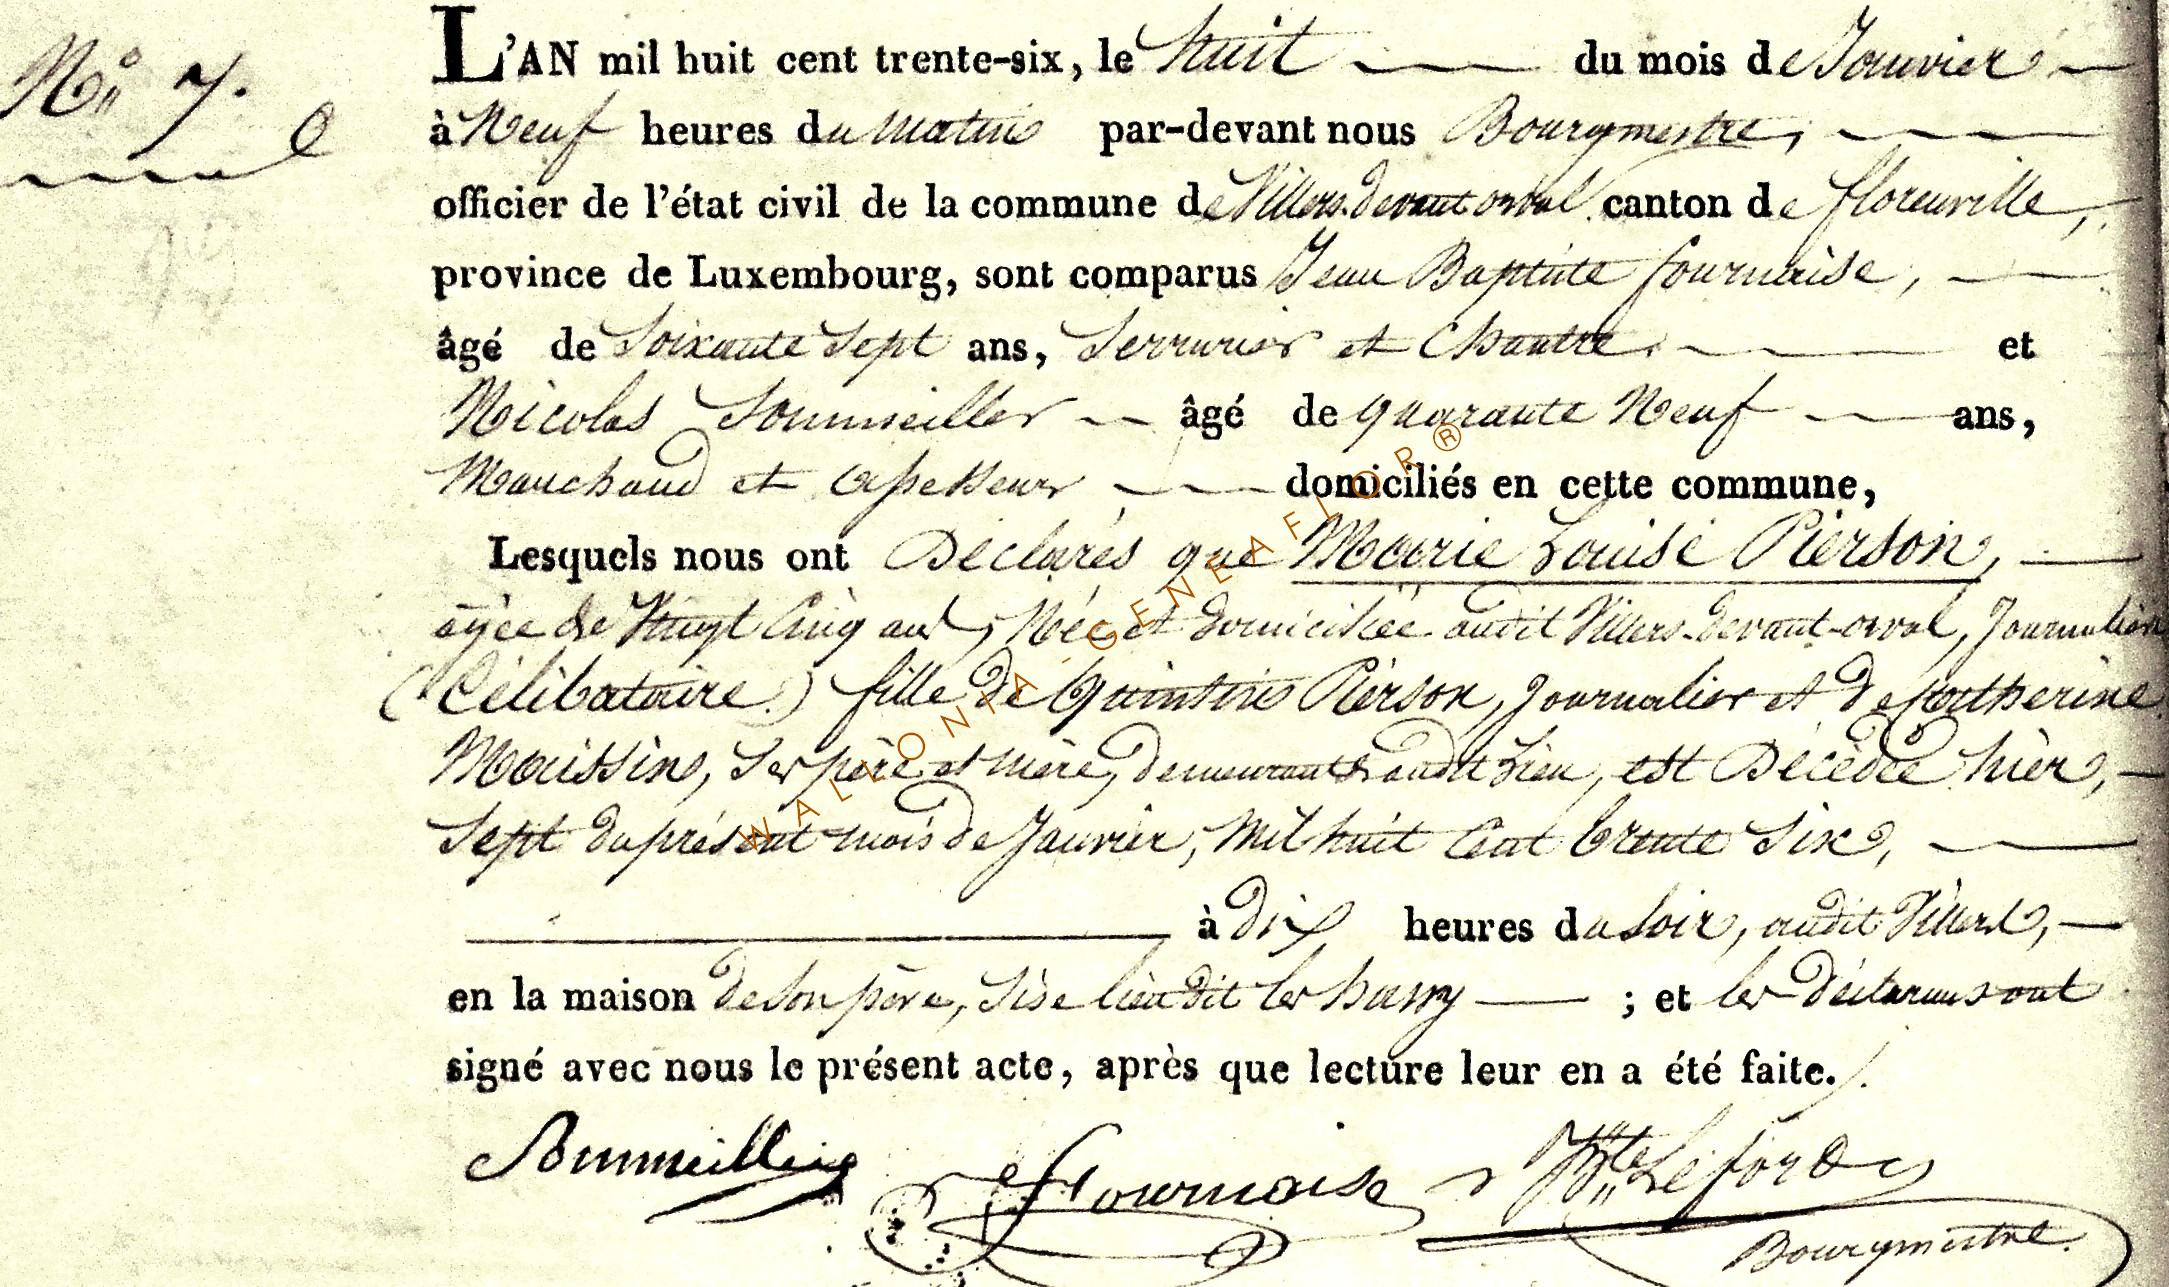 N° 7.
L'AN mil huit cent trente-six, le huit du mois de Janvier
à Neuf heures du matin par-devant nous Bourgmestre,
officier de l'état civil de la commune de Villers-devant-orval canton de florenville,
province de Luxembourg, sont comparus Jean Baptiste fournaise,
âgé de Soixante Sept ans, Serrurier et Chantre, et
Nicolas Sommeiller âgé de quarante Neuf ans,
Marchand et Assesseur, domiciliés en cette commune,
Lesquels nous ont Déclarés que Marie Louise Pierson,
agée de Vingt Cinq ans, Née et domiciliée audit Villers-devant-orval, Journalière
(Célibataire) fille de Quintin Pierson, Journalier et de Catherine
Maissin, Ses père et mère, demeurants audit Lieu, est Décédée hier,
Sept du présent mois de Janvier, Mil huit Cent trente Six,
à dix heures du Soir, audit Villers,
en la maison de Son père, Sise lieu dit les ; et les déclarans ont
signé avec nous le présent acte, après que lecture leur en a été faite.
Sommeiller Fournaise
Bourgmestre.
WALLONIA-GENEAFLOR®